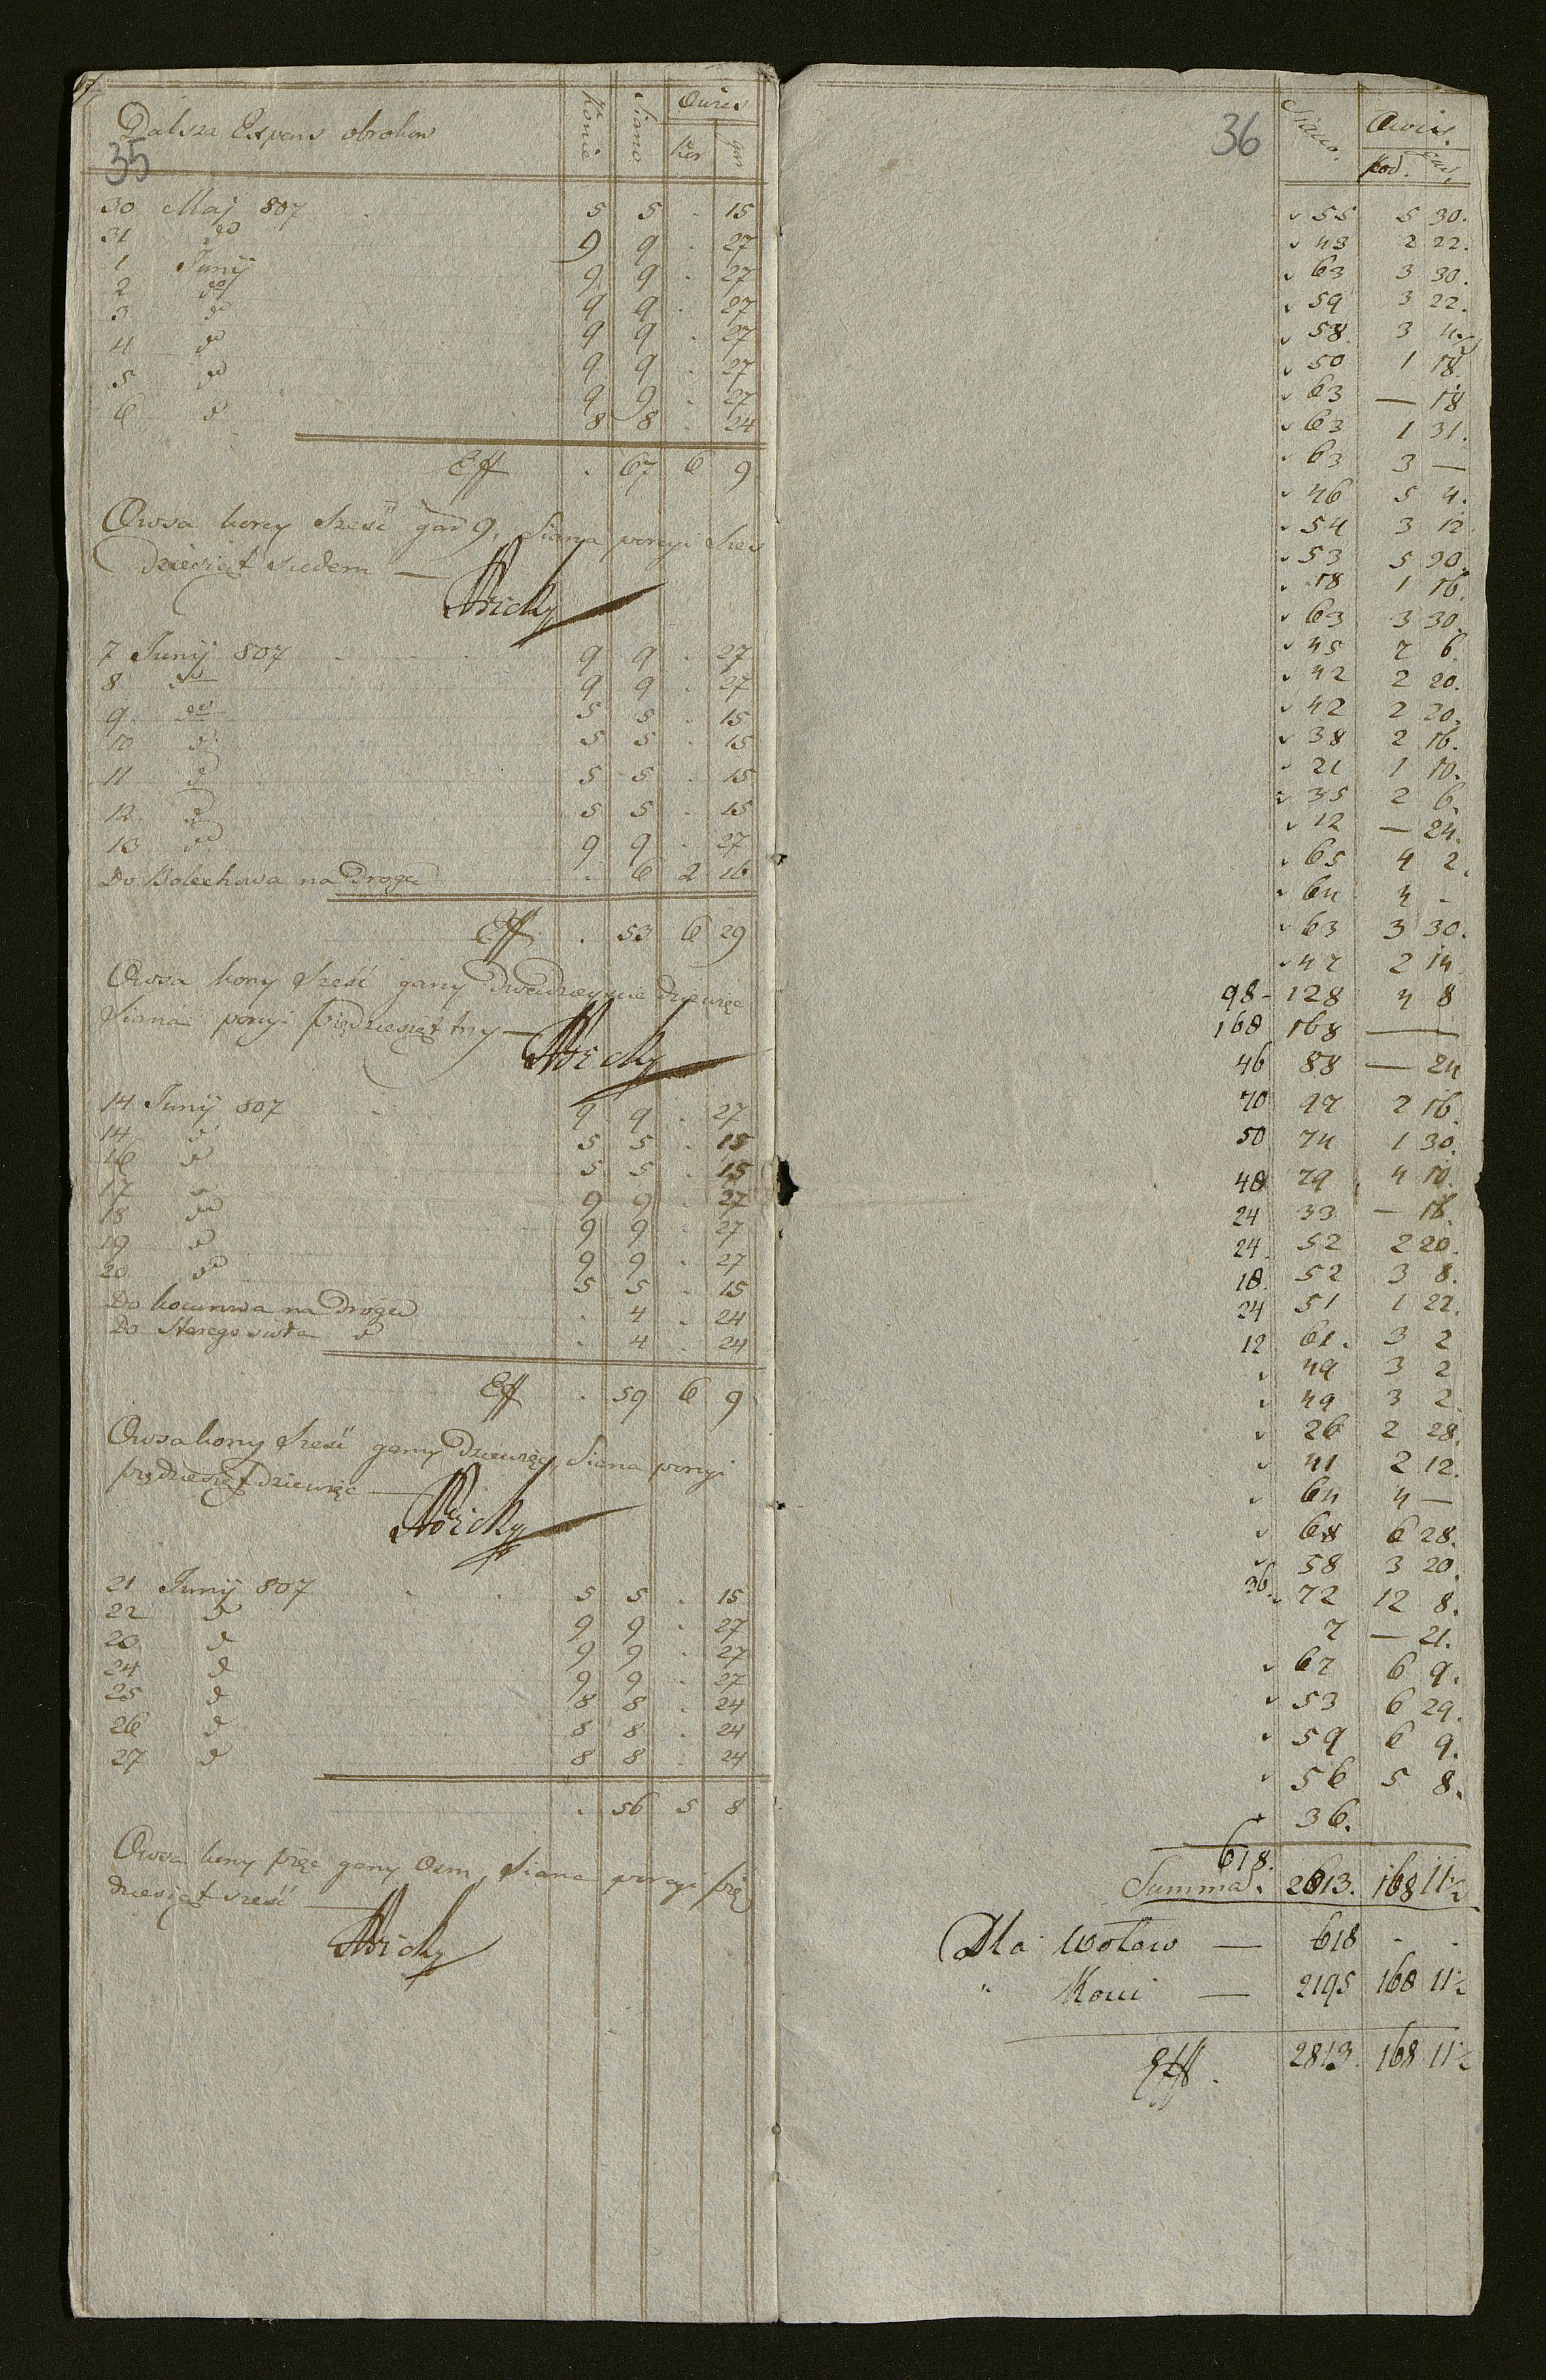 Dalsza Expens obrokow
Konie Siano Owies
Kor gar
35
30 Maj 807 5 5 . 15
31 do 9 9 . 27
1 Junij 9 9 . 27
2 do 9 9 . 27
3 do 9 9 . 27
4 do 9 9 . 27
5 do 9 9 . 27
6 do 8 8 . 24
Eff . 67 6 9
Owsa korcy sześć gar 9, Siana porcyi sześ
dziesiąt siedem —
7 Junij 807 9 9 . 27
8 do 9 9 . 27
9 do 5 5 . 15
10 do 5 5 . 15
11 do 5 5 . 15
12 do 5 5 . 15
13 do 9 9 . 27
Do Bolechowa na Drogę . 6 2 16
Eff . 53 6 29
Owsa korcy sześć garcy Dwadzieścia dziewięć
Siana porcyi pięcdziesiąt trzy —
14 Junij 807 9 9 . 27
14 do 5 5 . 15
16 do 5 5 . 15
17 9 9 . 27
18 do 9 9 . 27
19 do 9 9 . 27
20 do 5 5 . 15
Do na Drogę . 4 . 24
Do Starego sioła do . 4 . 24
Eff . 59 6 9
Owsa korcy sześć garcy Dziewięć, Siana porcyi
pięcdziesiąt dziewięć —
21 Junij 807 5 5 . 15
22 do 9 9 . 27
23 do 9 9 . 27
24 do 9 9 . 27
25 do 8 8 . 24
26 do 8 8 . 24
27 do 8 8 . 24
. 56 5 8
Owsa korcy pięć garcy Osm, Siana porcyi pięć
dziesiąt sześć —
36
Siano. Owies.
Kor. gar.
55 5 30.
43 2 22.
63 3 30.
59 3 22.
58. 3 4 1/2
50 1 18.
63 — 18
63 1 31.
63 3 —
46 5 4.
54 3 12
53 5 30.
18 1 16.
63 3 30
45 2 6.
42 2 20.
42 2 20.
38 2 16.
21 1 10.
35 2 6.
12 — 24.
65 4 2.
64 4 -
63 3 30.
47 2 14
98 - 128 4 8
168 168 —
46 88 — 24
70 97 2 16.
50 74 1 30.
48 79 4 10.
24 33 — 16.
24. 52 2 20.
18. 52 3 8.
24 51 1 22.
12 61. 3 2
49 3 2
49 3 2.
26 2 28.
41 2 12.
64 4 —
68 6 28.
58 3 20.
36. 72 12 8.
7 — 21.
67 6 9.
53 6 29.
59 6 9.
56 5 8.
36.
618.
Summa. 2813. 168 11 1/2
Dla Wołow — 618 - -
" Koni — 2195 168 11 1/2
Eff. 2813. 168 11 1/2